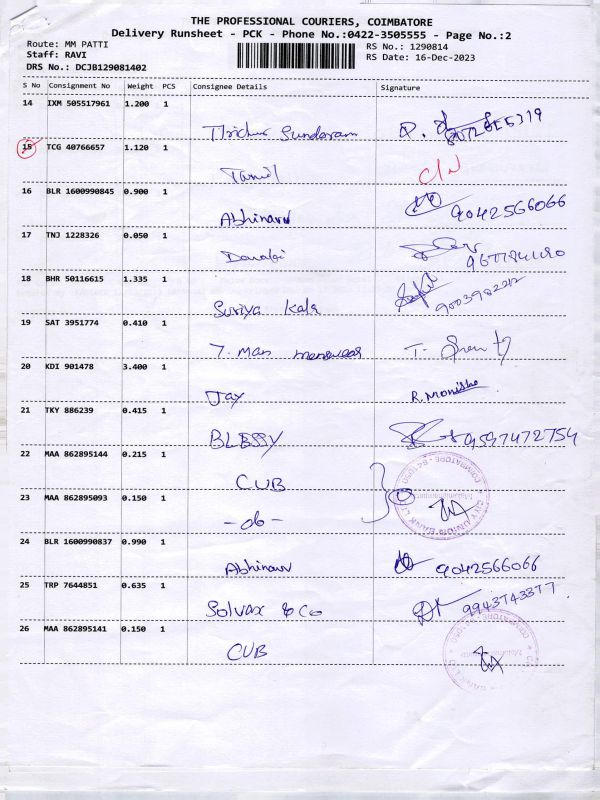 THE PROFESSIONAL COURIERS, COIMBATORE
Delivery Runsheet - PCK - Phone No.:0422-3505555 - Page No.:2
Route: MM PATTI
RS No.: 1290814
Staff: RAVI
RS Date: 16-Dec-2023
DRS No.: DCJB129081402
S No Consignment No Weight PCS Consignee Details Signature
14 IXM 505517961 1.200 1
Sundaram
15 TCG 40766657 1.120 1
Tamil C/N
16 BLR 1600990845 0.900 1
Abhinav 9042566066
17 TNJ 1228326 0.050 1
18 BHR 50116615 1.335 1
Suriya Kala
19 SAT 3951774 0.410 1
T. Man menswear
20 KDI 901478 3.400 1
Jay R. Monisha
21 TKY 886239 0.415 1
BLESSY 9597472754
22 MAA 862895144 0.215 1
CUB
23 MAA 862895093 0.150 1
- do -
CITY UNION BANK LTD COIMBATORE - 641
24 BLR 1600990837 0.990 1
Abhinav 9042566066
25 TRP 7644851 0.635 1
Solvax & Co 9943743377
26 MAA 862895141 0.150 1
CUB